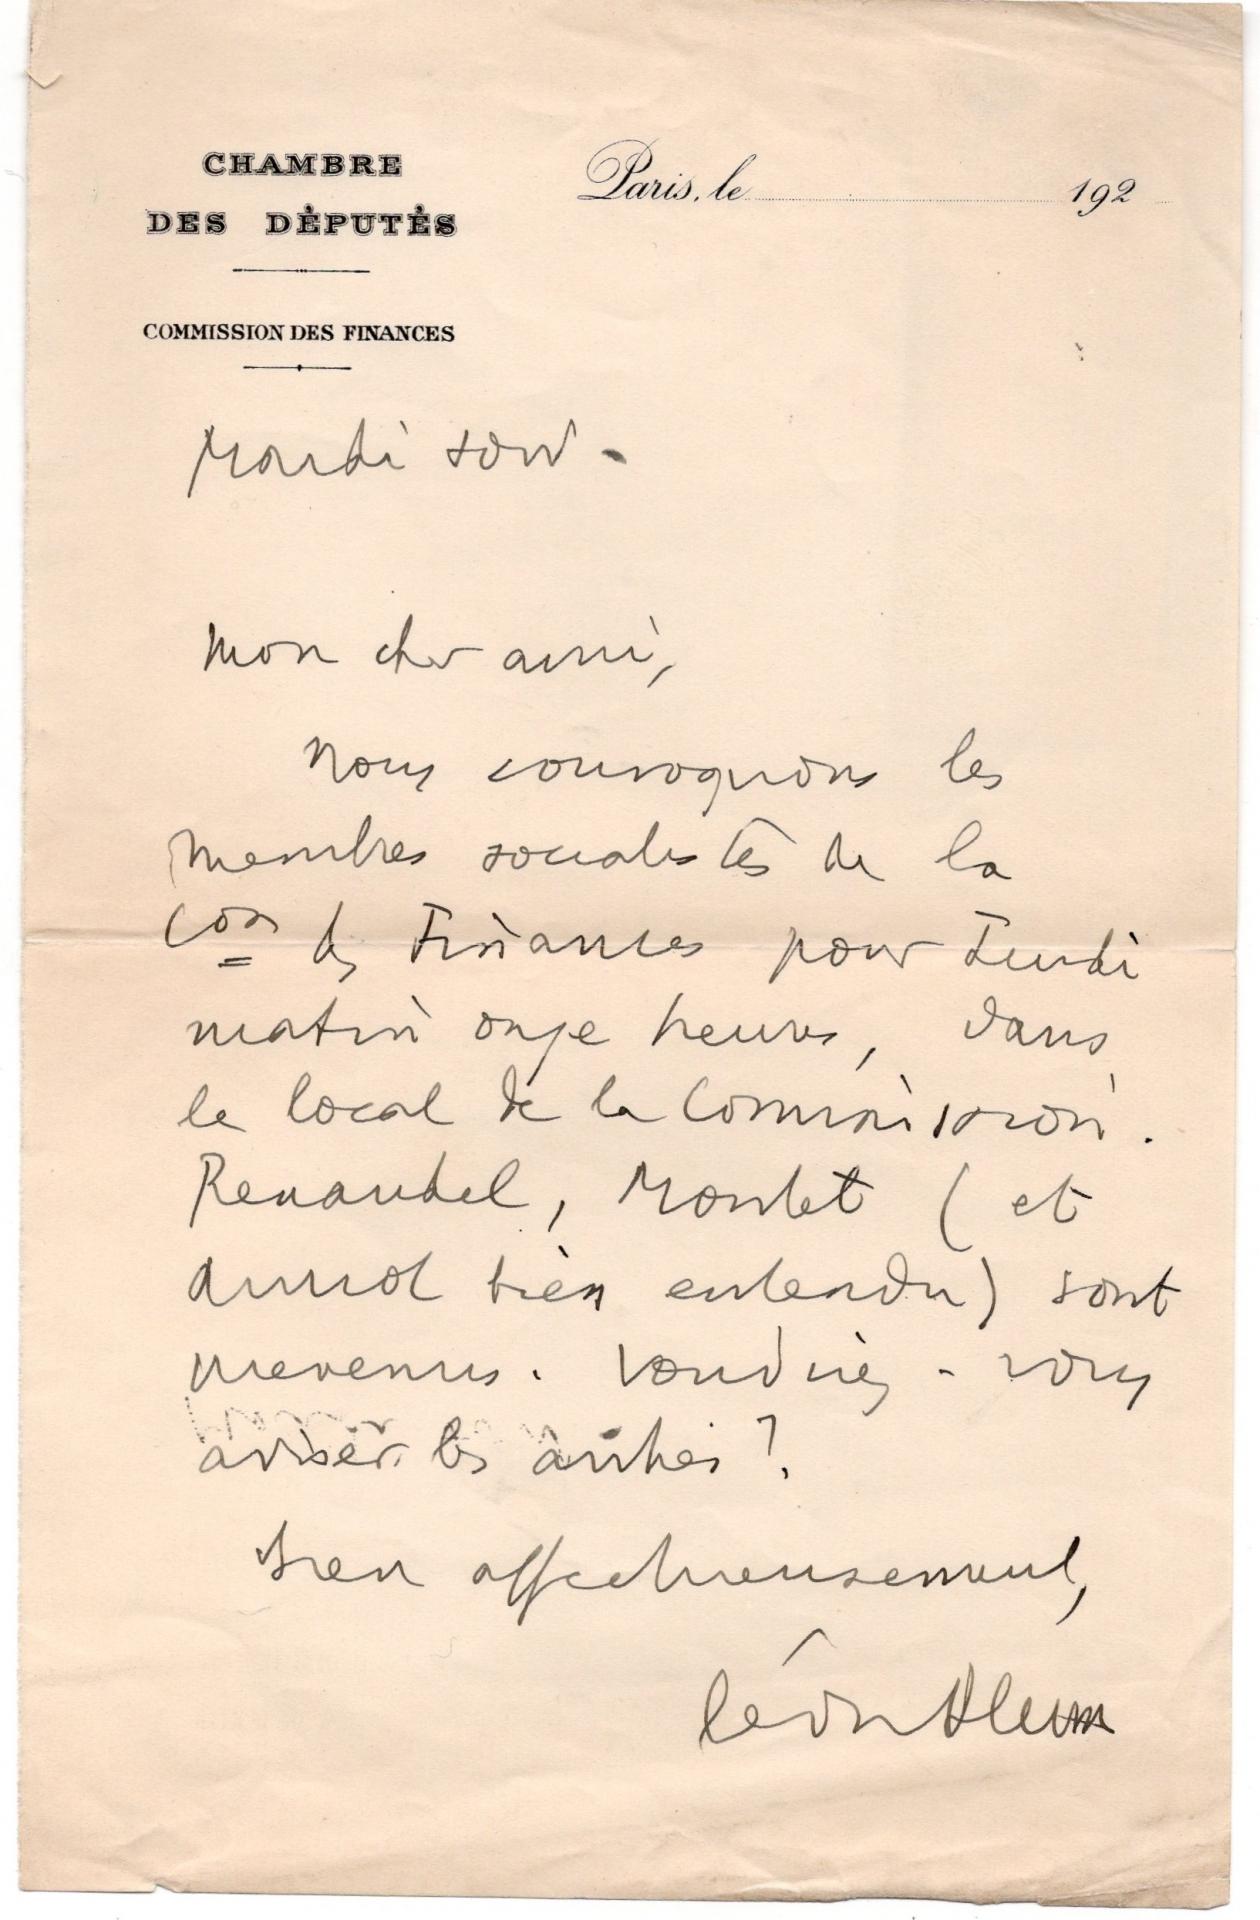 CHAMBRE
DES DÉPUTÉS
COMMISSION DES FINANCES
Paris, le 192
Mardi soir -
Mon cher ami,
Nous convoquons les
membres socialistes de la
Con des Finances pour Jeudi
matin onze heures, dans
le local de la Commission.
Renaudel, Moutet (et
Auriol bien entendu) sont
prévenus. Voudriez-vous
aviser les autres ?
Bien affectueusement,
Léon Blum